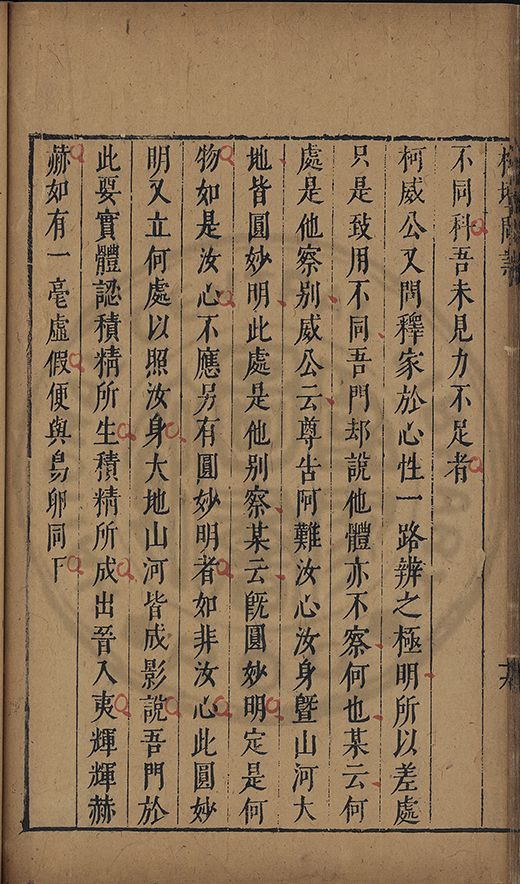 榕壇問業
不同科吾未見力不足者
柯威公又問釋家於心性一路辨之極明所以差處
只是致用不同吾門却說他體亦不察何也某云何
處是他察别威公云尊告阿難汝心汝身暨山河大
地皆圓妙明此處是他别察某云旣圓妙明定是何
物如是汝心不應另有圓妙明者如非汝心此圓妙
明又立何處以照汝身大地山河皆成影說吾門於
此要實體認積精所生積精所成出晉入夷輝輝赫
赫如有一毫虛假便與鳥卵同下